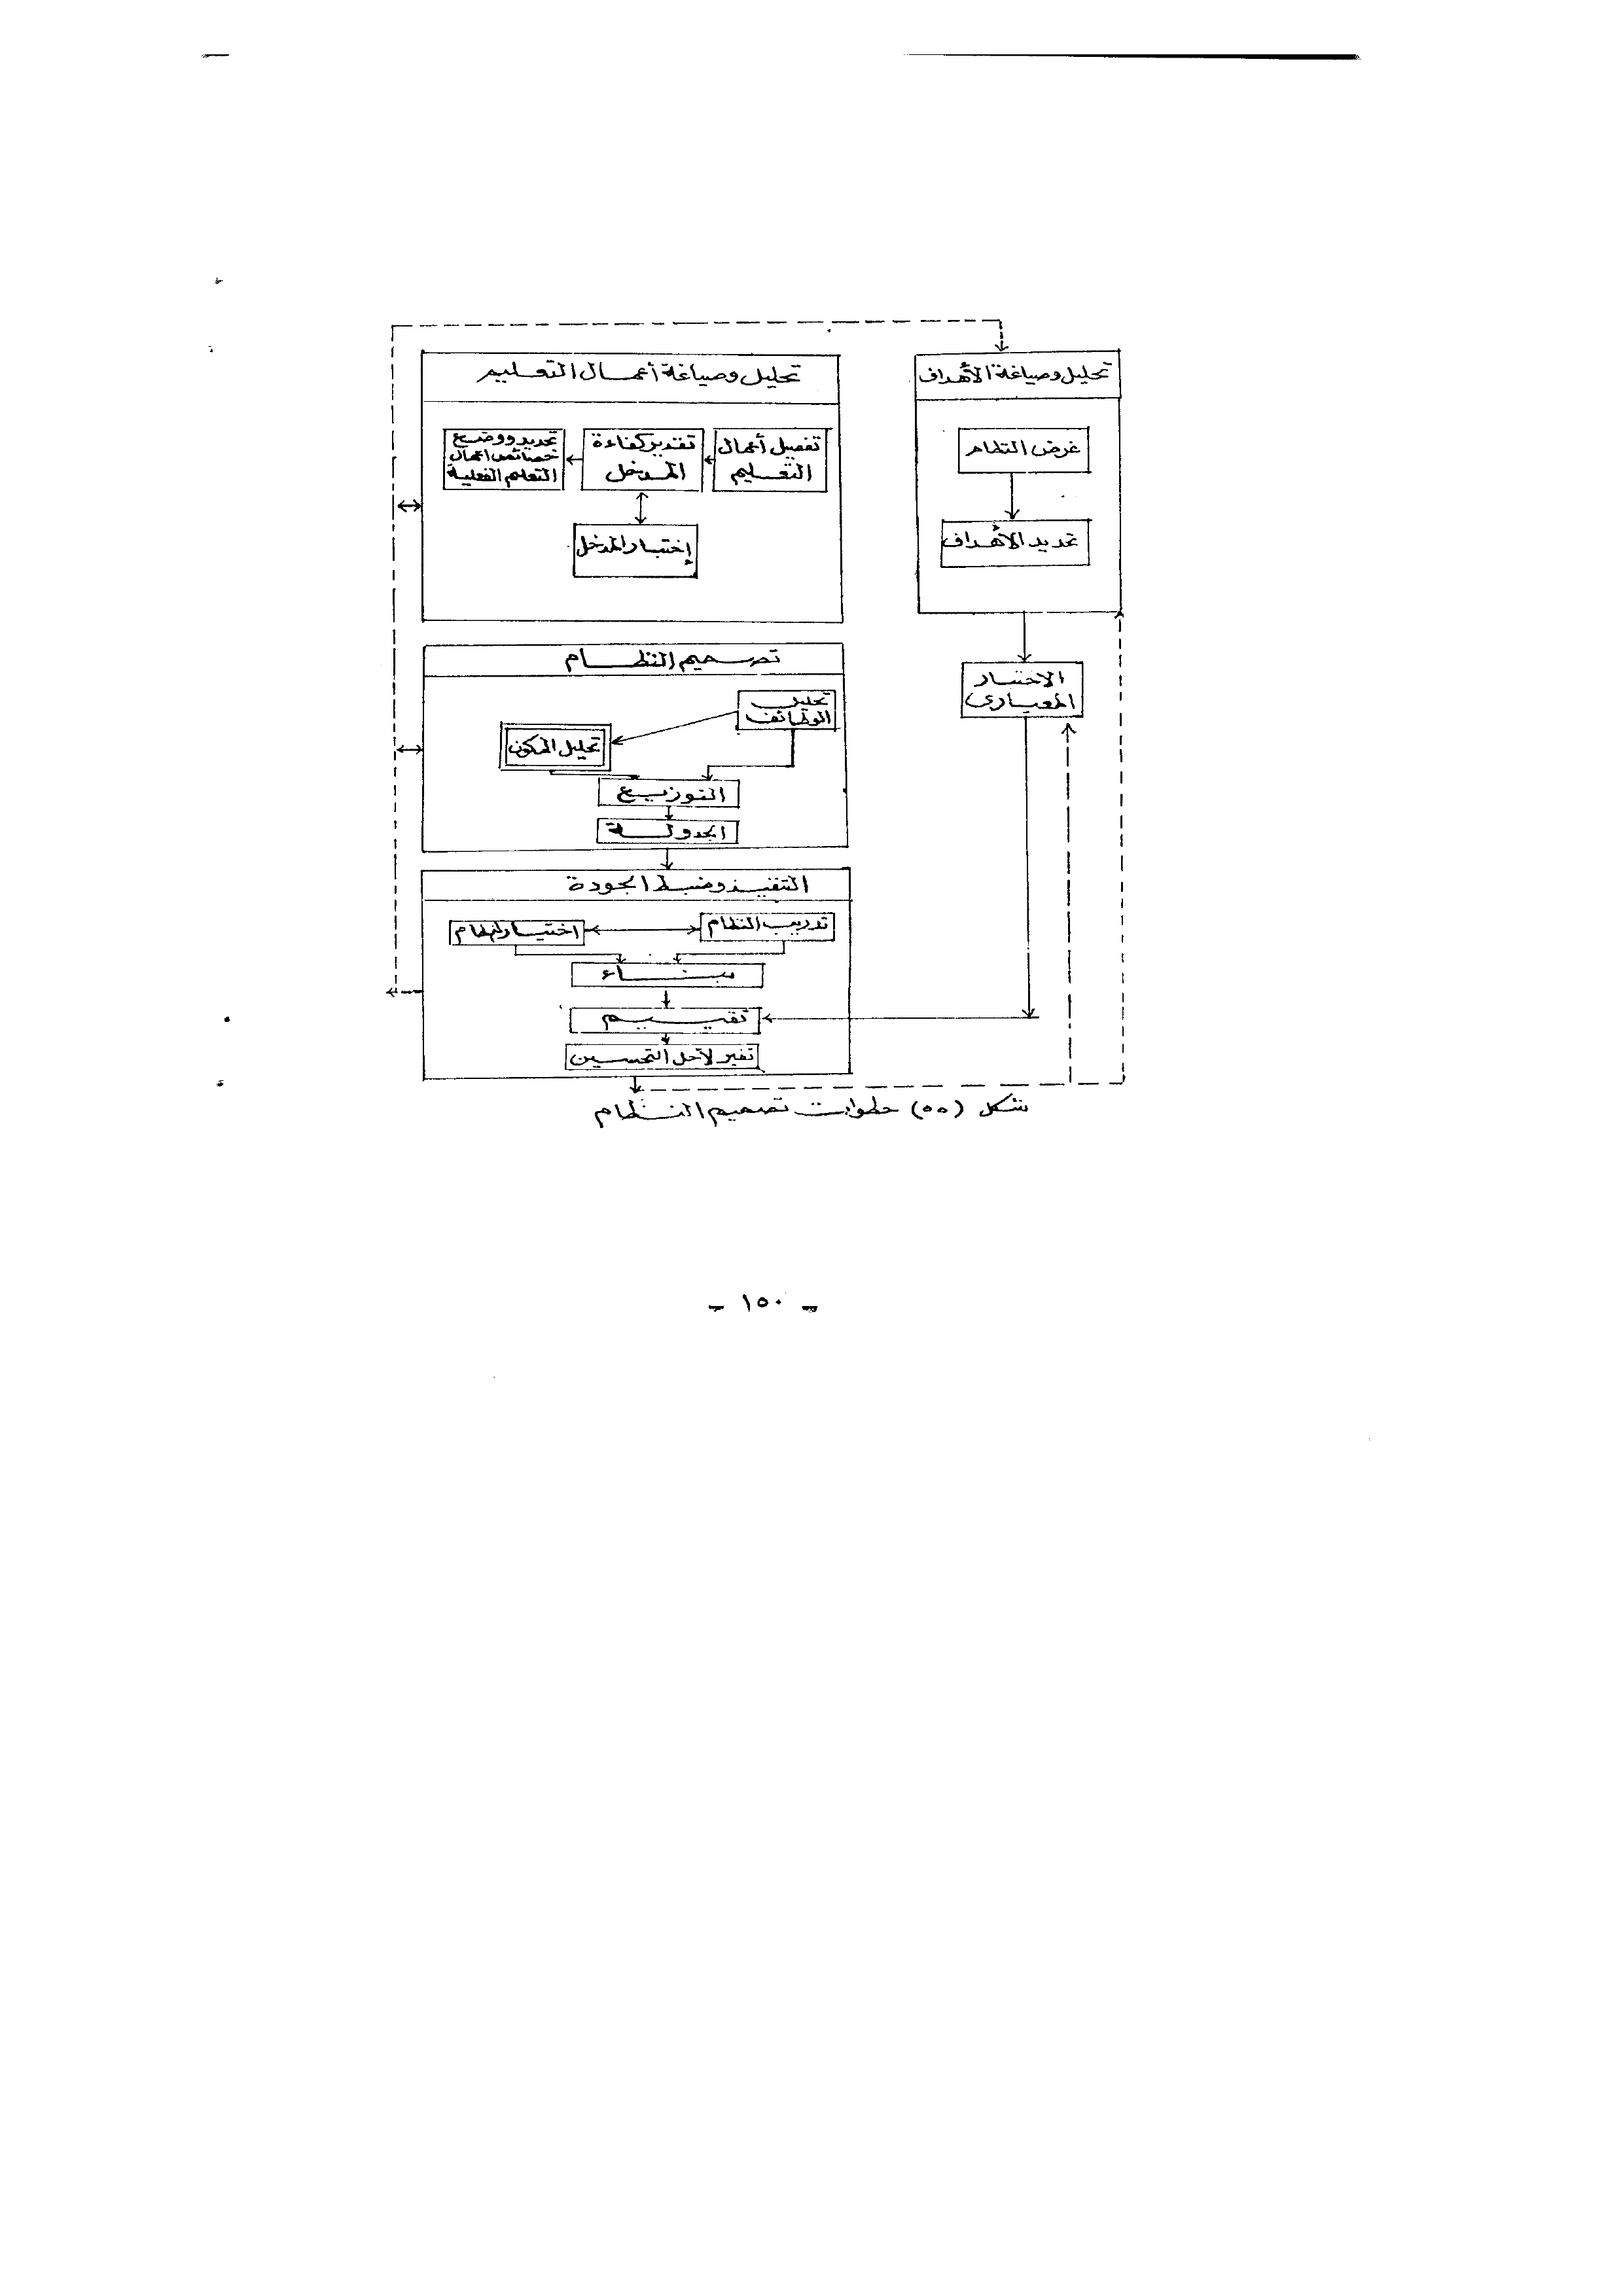 تحليل وصياغة الأهداف
غرض النظام
تحديد الأهداف
الاختبار
المعيارى
تحليل وصياغة أعمال التعليم
تفصيل أعمال
التعليم
تقدير كفاءة
المدخل
تحديد ووضع
خصائص اعمال
التعليم الفعلية
إختبار المدخل
تصميم النظام
تحليل
الوظائف
تحليل المكون
التوزيع
الجدولة
التنفيذ وضبط الجودة
تدريب النظام
اختبار النظام
بناء
تقييم
تغير لأجل التحسين
شكل (٥٥) خطوات تصميم النظام
- ١٥٠ -